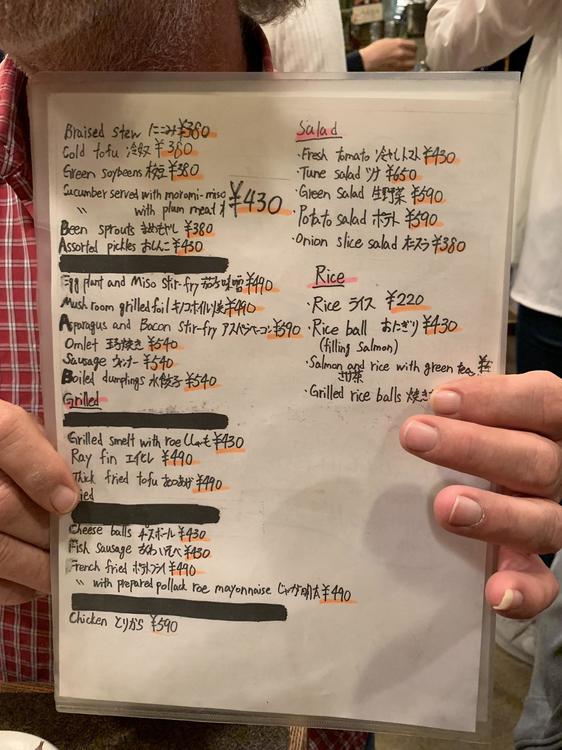 Braised stew にこみ ¥380
Cold tofu 冷奴 ¥380
Green soybeens 枝豆 ¥380
Cucumber served with moromi-miso
〃 with plum meat ¥430
Been sprouts まめもやし ¥380
Assorted pickles おしんこ ¥430
Egg plant and Miso stir-fry ¥490
Mush room grilled foil キノコホイル焼 ¥490
Asparagus and Bacon stir-fry アスパベーコン ¥590
Omlet 玉子焼き ¥540
Sausage ウィンナー ¥540
Boiled dumplings 水餃子 ¥540
Grilled
Grilled smelt with roe ししゃも ¥430
Ray fin エイヒレ ¥490
Thick fried tofu あつあげ ¥490
Cheese balls チーズボール ¥430
Fish Sausage ¥430
French fried ポテトフライ ¥490
〃 with prepared pollack roe mayonnaise じゃが明太 ¥490
Chicken とりから ¥590
Salad
・Fresh tomato 冷やしトマト ¥430
・Tune salad ツナ ¥650
・Green salad 生野菜 ¥590
・Potato salad ポテト ¥590
・Onion slice salad オニスラ ¥380
Rice
・Rice ライス ¥220
・Rice ball おにぎり ¥430
(filling Salmon)
・Salmon and rice with green tea
・Grilled rice balls 焼き